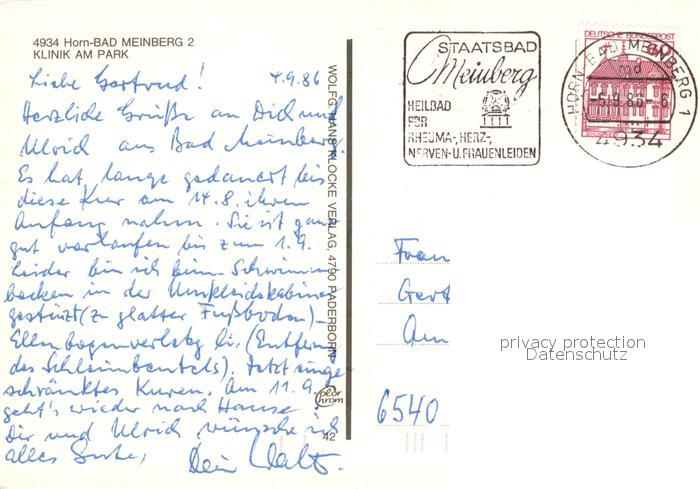 4934 Horn-BAD MEINBERG 2
KLINIK AM PARK
Liebe Gertrud! 4.9.86
Herzliche Grüße an Dich und
Ulrich aus Bad Meinberg.
Es hat lange gedauert bis
diese Kur am 14.8. ihren
Anfang nahm. Sie ist ganz
gut verlaufen bis zum 1.9.
Leider bin ich beim Schwimm
becken in der Umkleidekabine
gestürzt (zu glatter Fußboden) –
Ellenbogenverletzg li. (Entferng
des Schleimbeutels). Jetzt einge
schränktes Kuren. Am 11.9.
geht's wieder nach Hause!
Dir und Ulrich wünsche ich
alles Gute, Dein Walter.
WOLFG. HANS KLOCKE VERLAG, 4790 PADERBORN
color
chrom
42
STAATSBAD
Meinberg
HEILBAD
FÜR
RHEUMA-, HERZ-,
NERVEN- U. FRAUENLEIDEN
DEUTSCHE BUNDESPOST
60
HORN-BAD MEINBERG 1
md
-5.9.86-6
4934
Frau
Gert
Am
6540
privacy protection
Datenschutz